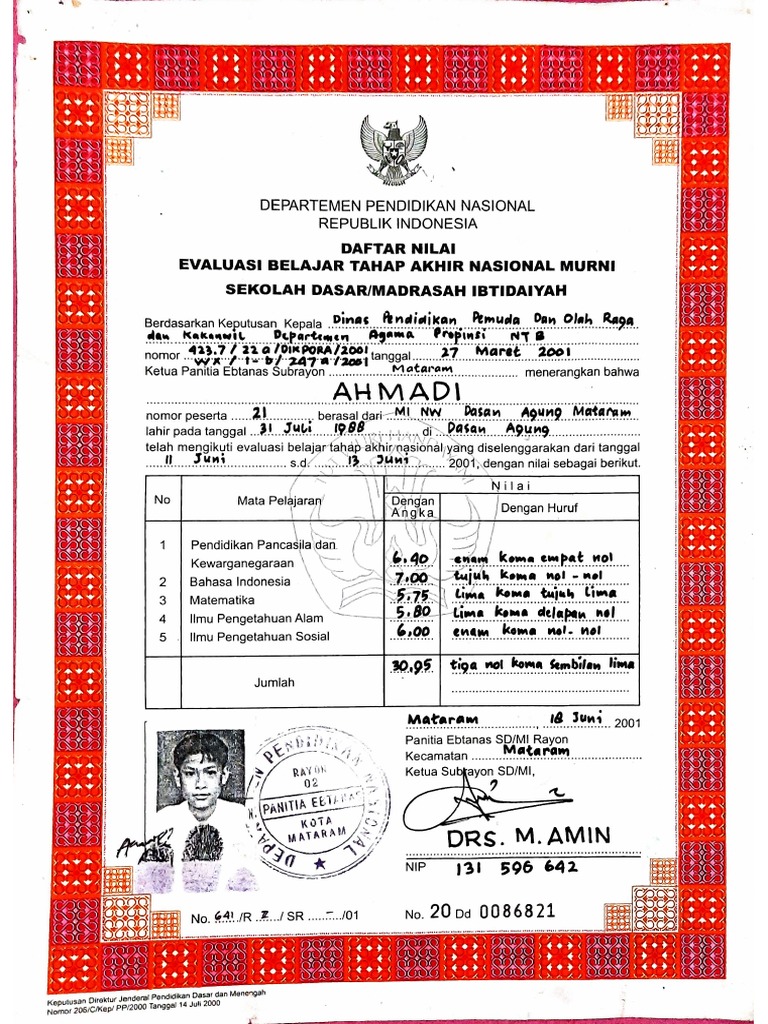 DEPARTEMEN PENDIDIKAN NASIONAL
REPUBLIK INDONESIA
DAFTAR NILAI
EVALUASI BELAJAR TAHAP AKHIR NASIONAL MURNI
SEKOLAH DASAR/MADRASAH IBTIDAIYAH
Berdasarkan Keputusan Kepala Dinas Pendidikan Pemuda Dan Olah Raga
dan Kakanwil Departemen Agama Propinsi NTB
nomor 423.7/22a/DIKPORA/2001 tanggal 27 Maret 2001
WX/1-b/247a/2001
Ketua Panitia Ebtanas Subrayon Mataram menerangkan bahwa
AHMADI
nomor peserta 21 berasal dari MI NW Dasan Agung Mataram
lahir pada tanggal 31 Juli 1988 di Dasan Agung
telah mengikuti evaluasi belajar tahap akhir nasional yang diselenggarakan dari tanggal
11 Juni s.d. 13 Juni 2001, dengan nilai sebagai berikut.
No Mata Pelajaran Nilai
Dengan Angka Dengan Huruf
1 Pendidikan Pancasila dan
Kewarganegaraan 6.40 enam koma empat nol
2 Bahasa Indonesia 7.00 tujuh koma nol - nol
3 Matematika 5.75 lima koma tujuh lima
4 Ilmu Pengetahuan Alam 5.80 lima koma delapan nol
5 Ilmu Pengetahuan Sosial 6.00 enam koma nol - nol
Jumlah 30.95 tiga nol koma sembilan lima
Mataram, 18 Juni 2001
Panitia Ebtanas SD/MI Rayon
Kecamatan Mataram
Ketua Subrayon SD/MI,
DEPARTEMEN PENDIDIKAN NASIONAL
RAYON
02
PANITIA EBTANAS
KOTA
MATARAM
DRS. M. AMIN
NIP 131 596 642
No. 641/R I/ SR - /01
No. 20 Dd 0086821
Keputusan Direktur Jenderal Pendidikan Dasar dan Menengah
Nomor 206/C/Kep/ PP/2000 Tanggal 14 Juli 2000